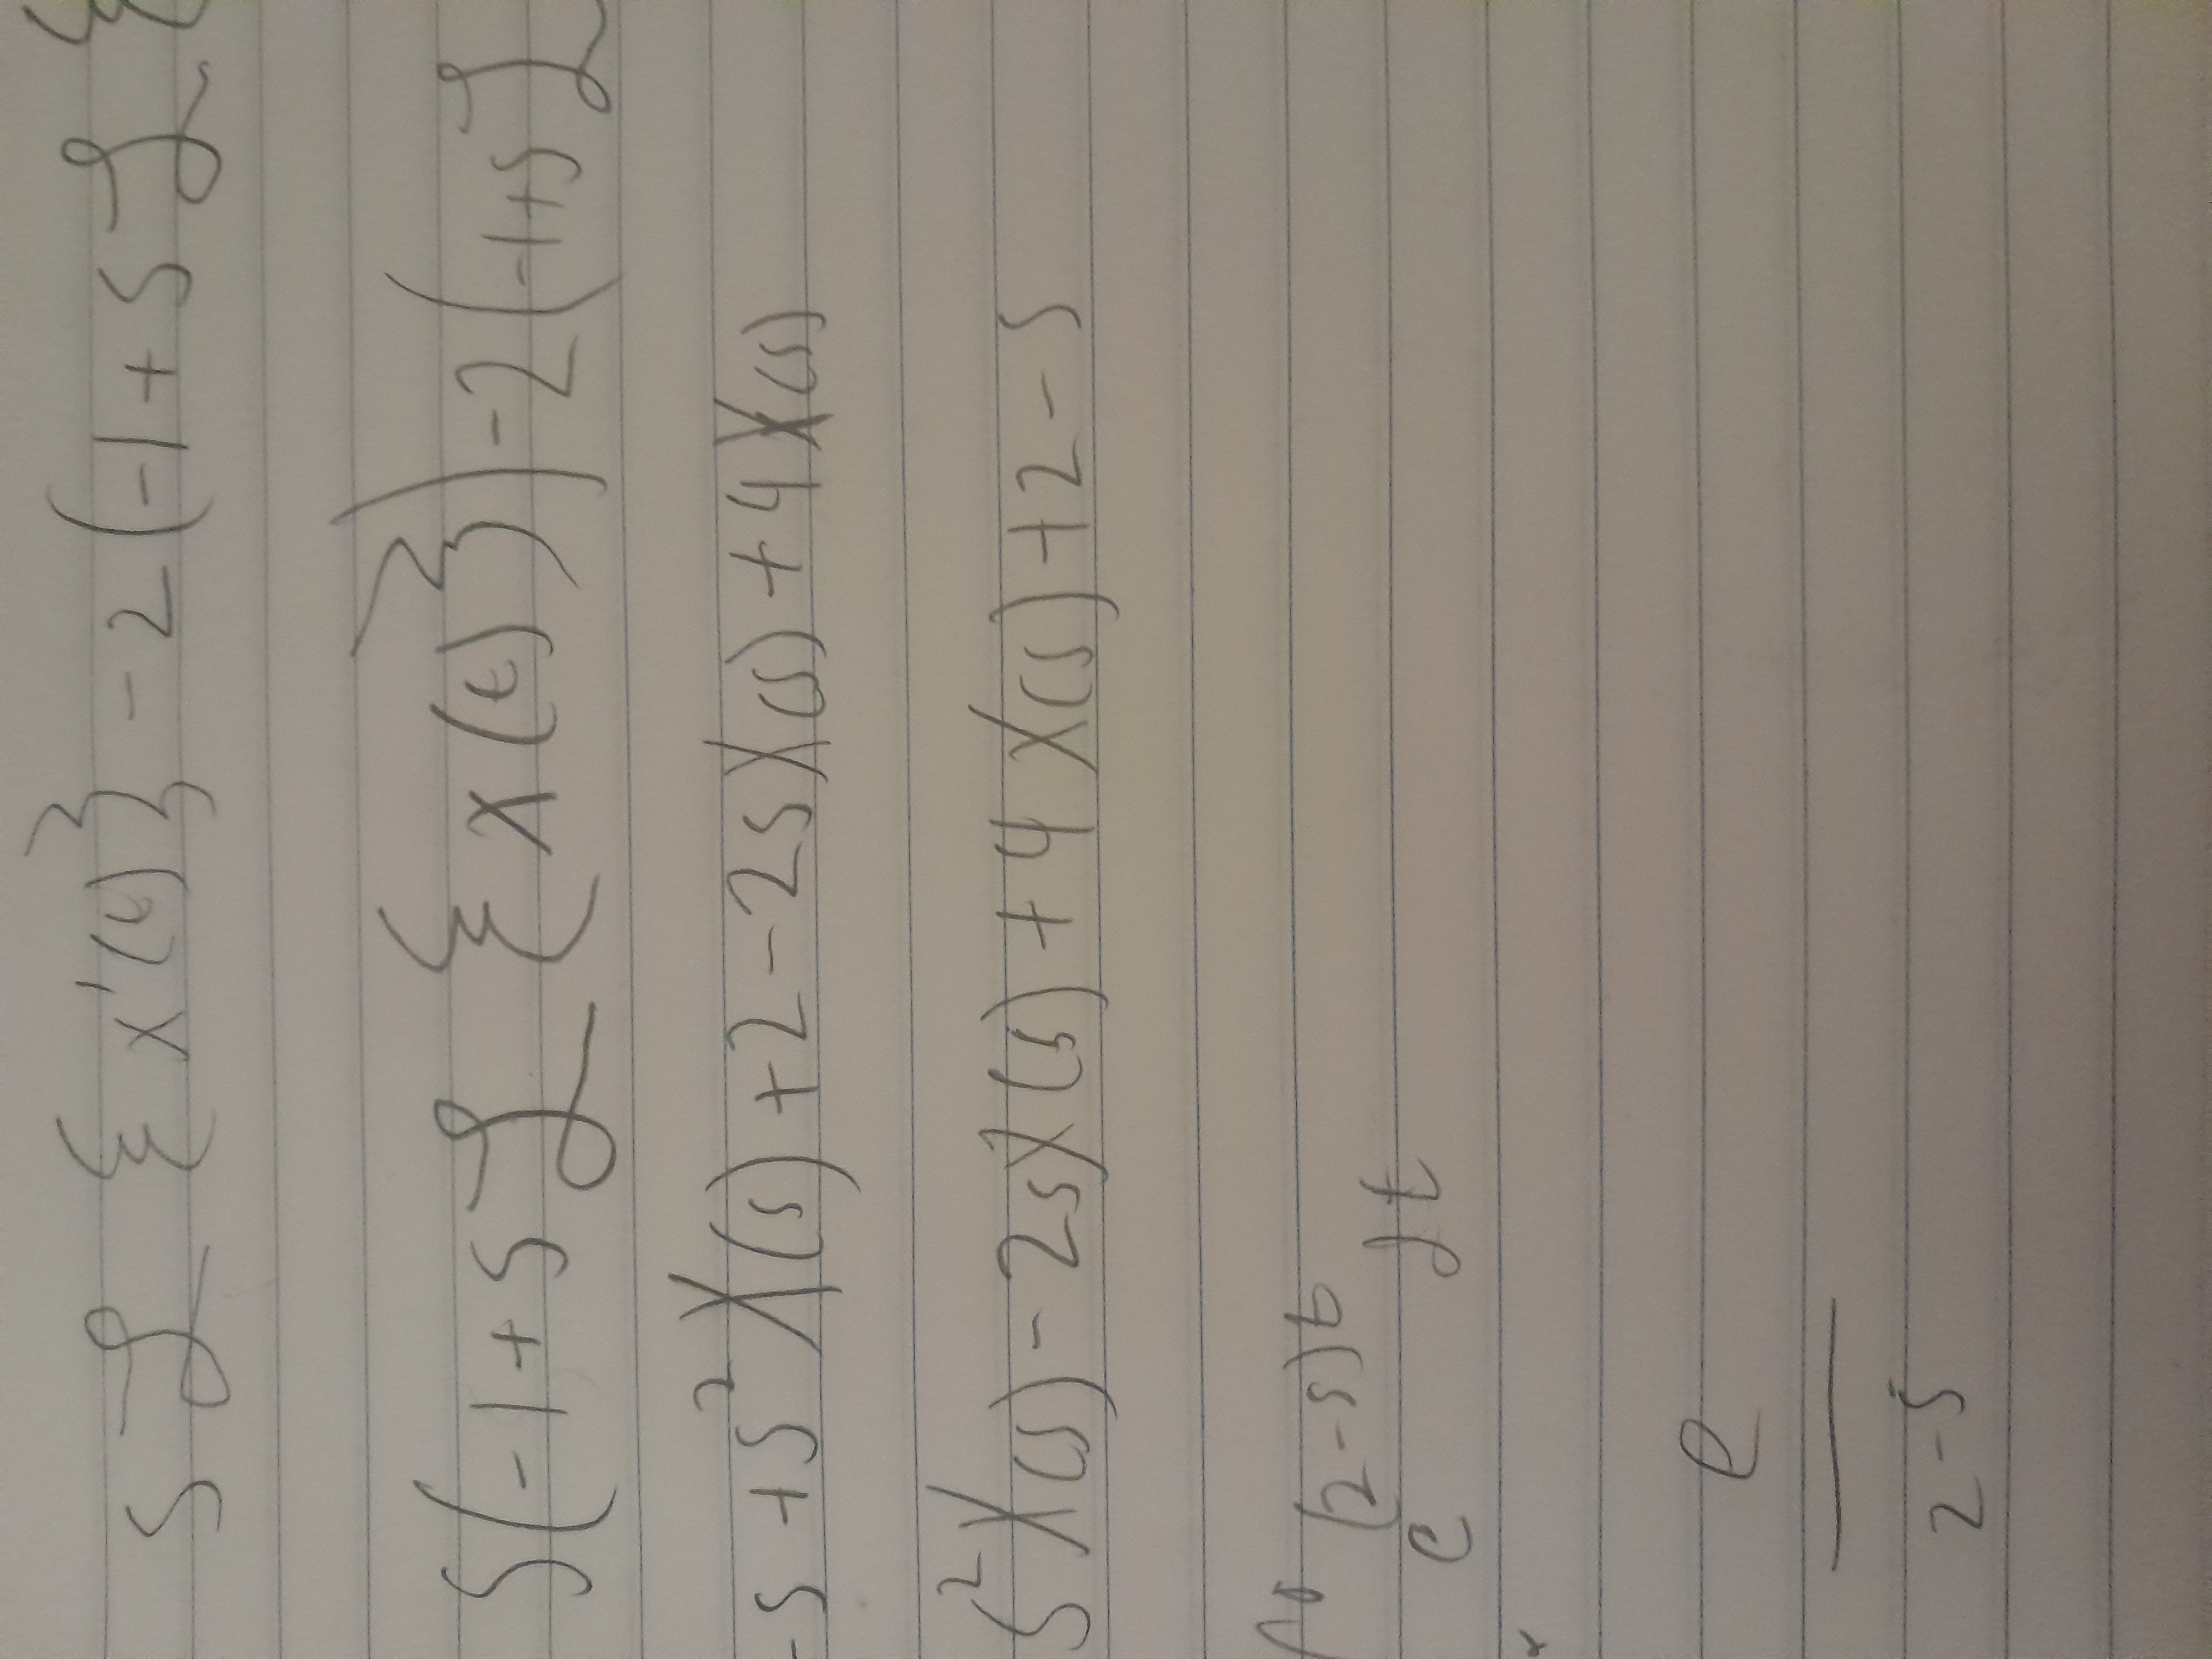 s ℒ {x'(t)} - 2(-1 + s ℒ {
s(-1 + s ℒ {x(t)}) - 2(-1 + s ℒ
-s + s² X(s) + 2 - 2s X(s) + 4 X(s)
s² X(s) - 2s X(s) + 4 X(s) + 2 - s
e^{(2-s)t} dt
e
2 - s